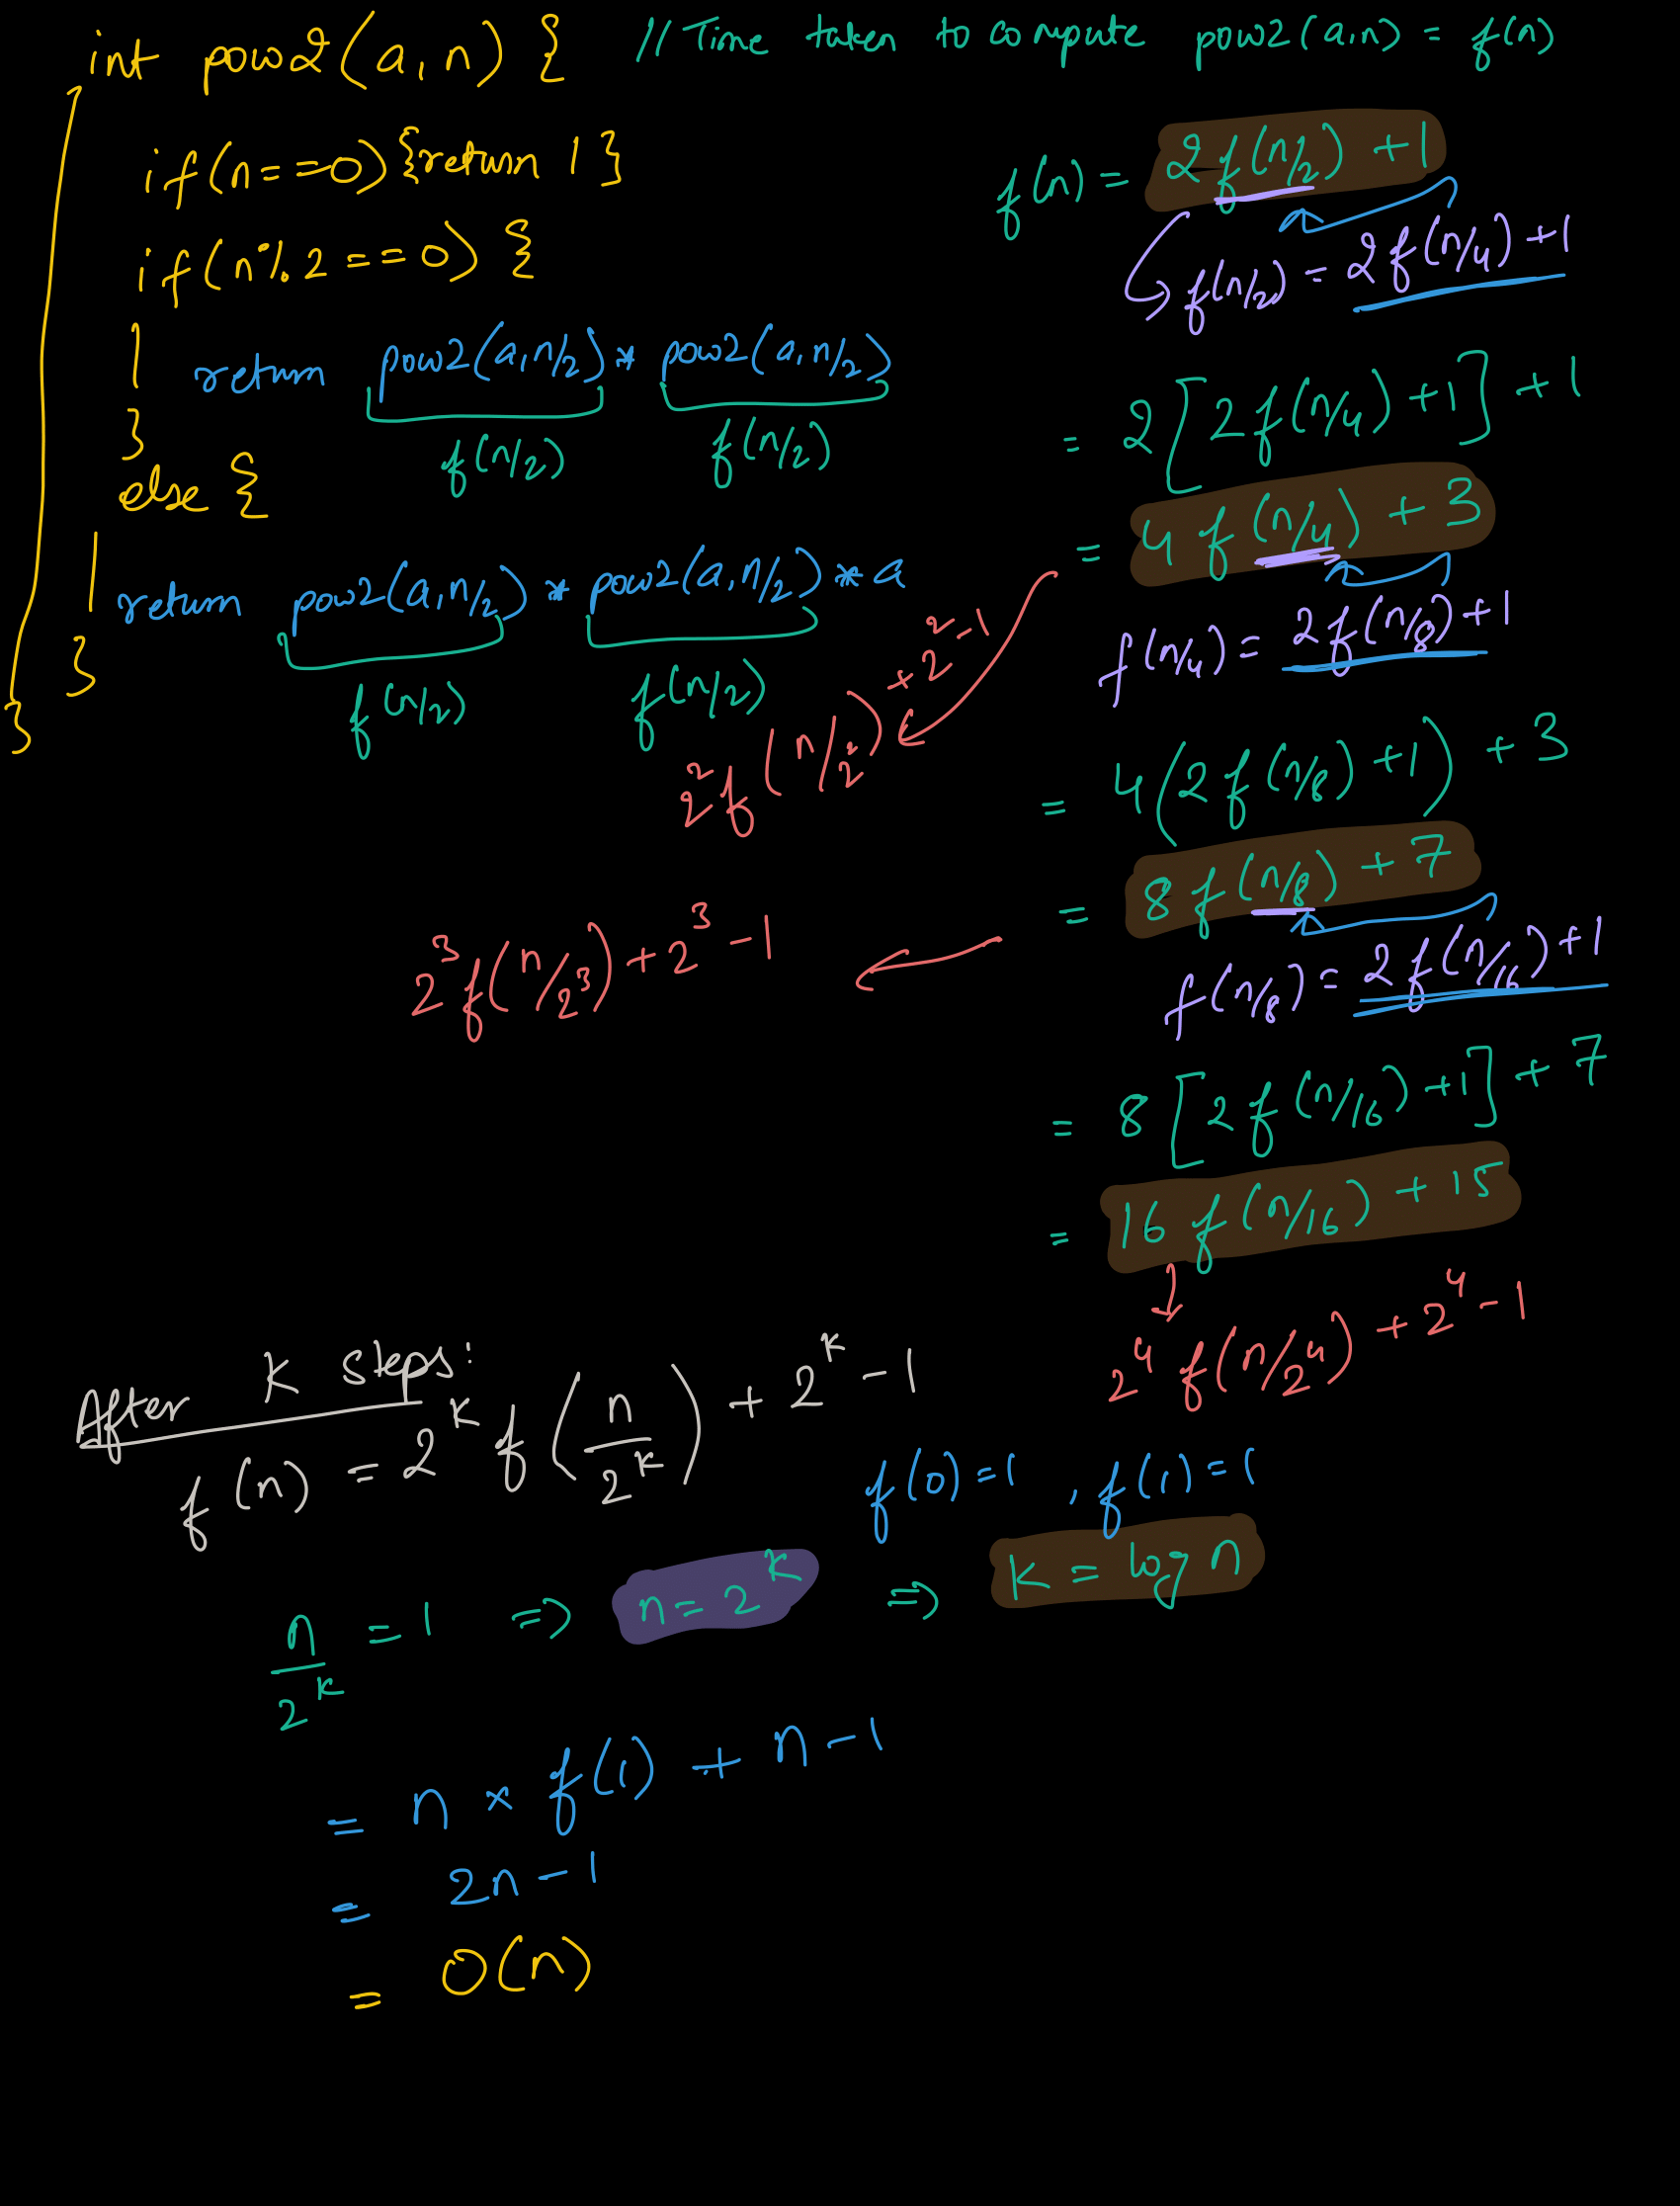 int pow2(a, n) { // Time taken to compute pow2(a,n) = f(n)
if(n==0){return 1}
if(n%2==0) {
return pow2(a,n/2) * pow2(a,n/2)
f(n/2) f(n/2)
}
else {
return pow2(a,n/2) * pow2(a,n/2) * a
f(n/2) f(n/2)
}
}
f(n) = 2f(n/2) +1
f(n/2) = 2f(n/4)+1
= 2[2f(n/4)+1]+1
= 4f(n/4) + 3
2²f(n/2²) + 2²-1
f(n/4) = 2f(n/8)+1
= 4(2f(n/8)+1) + 3
= 8f(n/8) + 7
2³f(n/2³)+2³-1
f(n/8) = 2f(n/16)+1
= 8[2f(n/16)+1] + 7
= 16f(n/16) + 15
2⁴f(n/2⁴) + 2⁴-1
After K steps:
f(n) = 2^K f(n/2^K) + 2^K - 1
f(0)=1, f(1)=1
n/2^K = 1 ⇒ n=2^K ⇒ K = log n
= n × f(1) + n - 1
= 2n - 1
= O(n)